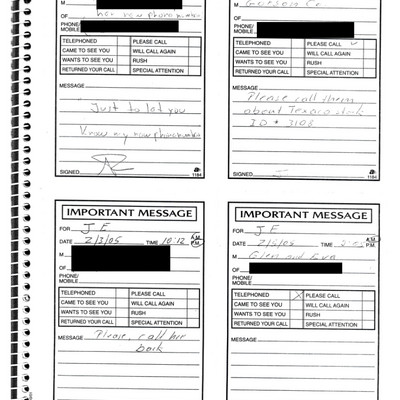 M
OF her new phone number
PHONE/
MOBILE
TELEPHONED PLEASE CALL
CAME TO SEE YOU WILL CALL AGAIN
WANTS TO SEE YOU RUSH
RETURNED YOUR CALL SPECIAL ATTENTION
MESSAGE
"Just to let you
know my new phone number
SIGNED 1184
M
OF Co
PHONE/
MOBILE
TELEPHONED PLEASE CALL ✓
CAME TO SEE YOU WILL CALL AGAIN
WANTS TO SEE YOU RUSH
RETURNED YOUR CALL SPECIAL ATTENTION
MESSAGE
Please call them
about Texaco
ID # 3108
SIGNED J 1184
IMPORTANT MESSAGE
FOR J E
DATE 2/1/05 TIME 10:12 A.M. P.M.
M
OF
PHONE/
MOBILE
TELEPHONED PLEASE CALL
CAME TO SEE YOU WILL CALL AGAIN
WANTS TO SEE YOU RUSH
RETURNED YOUR CALL SPECIAL ATTENTION
MESSAGE Please, call her
back
IMPORTANT MESSAGE
FOR J E
DATE 2/5/05 TIME A.M. P.M.
M Glen and Eva
OF
PHONE/
MOBILE
TELEPHONED X PLEASE CALL
CAME TO SEE YOU WILL CALL AGAIN
WANTS TO SEE YOU RUSH
RETURNED YOUR CALL SPECIAL ATTENTION
MESSAGE